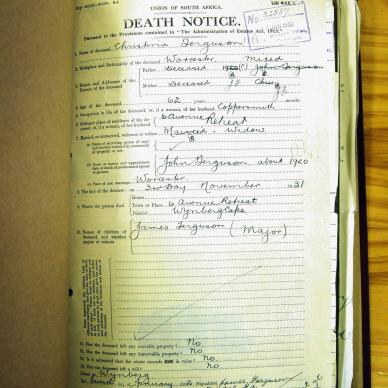 UNION OF SOUTH AFRICA.
DEATH NOTICE.
Pursuant to the Provisions contained in "The Administration of Estates Act, 1913."
No. 32587
1. Name of deceased, Christina Ferguson
2. Birthplace and Nationality of the deceased Worcester Mixed
3. Names and Addresses of the Parents of the deceased
Father Deceased John Ferguson
Mother Deceased
4. Age of the deceased 62 years months
5. Occupation in life of the deceased, or, if a woman, of her husband Coppersmith
6. Ordinary place of residence of the deceased, or, if a woman, of her husband 6 Avenue Retreat
7. Married, or unmarried, widower or widow Married - Widow
(a) Name of surviving spouse (if any) and whether married in community of property or not
(b) Name or names and approximate date of death of predeceased spouse or spouses John Ferguson about 1920
(c) Place of last marriage Worcester
8. The day of the decease on 3rd Day November 31
9. Where the person died
House
Town or Place 6 Avenue Retreat
District Wynberg Cape
10. Names of children of deceased, and whether majors or minors
James Ferguson (Major)
11. Has the deceased left any movable property? No.
12. Has the deceased left any immovable property? No.
13. Is it estimated that the estate exceeds in value? No.
14. Has the deceased left a will? No.
Dated at Wynberg
the day of January Signature James Ferguson